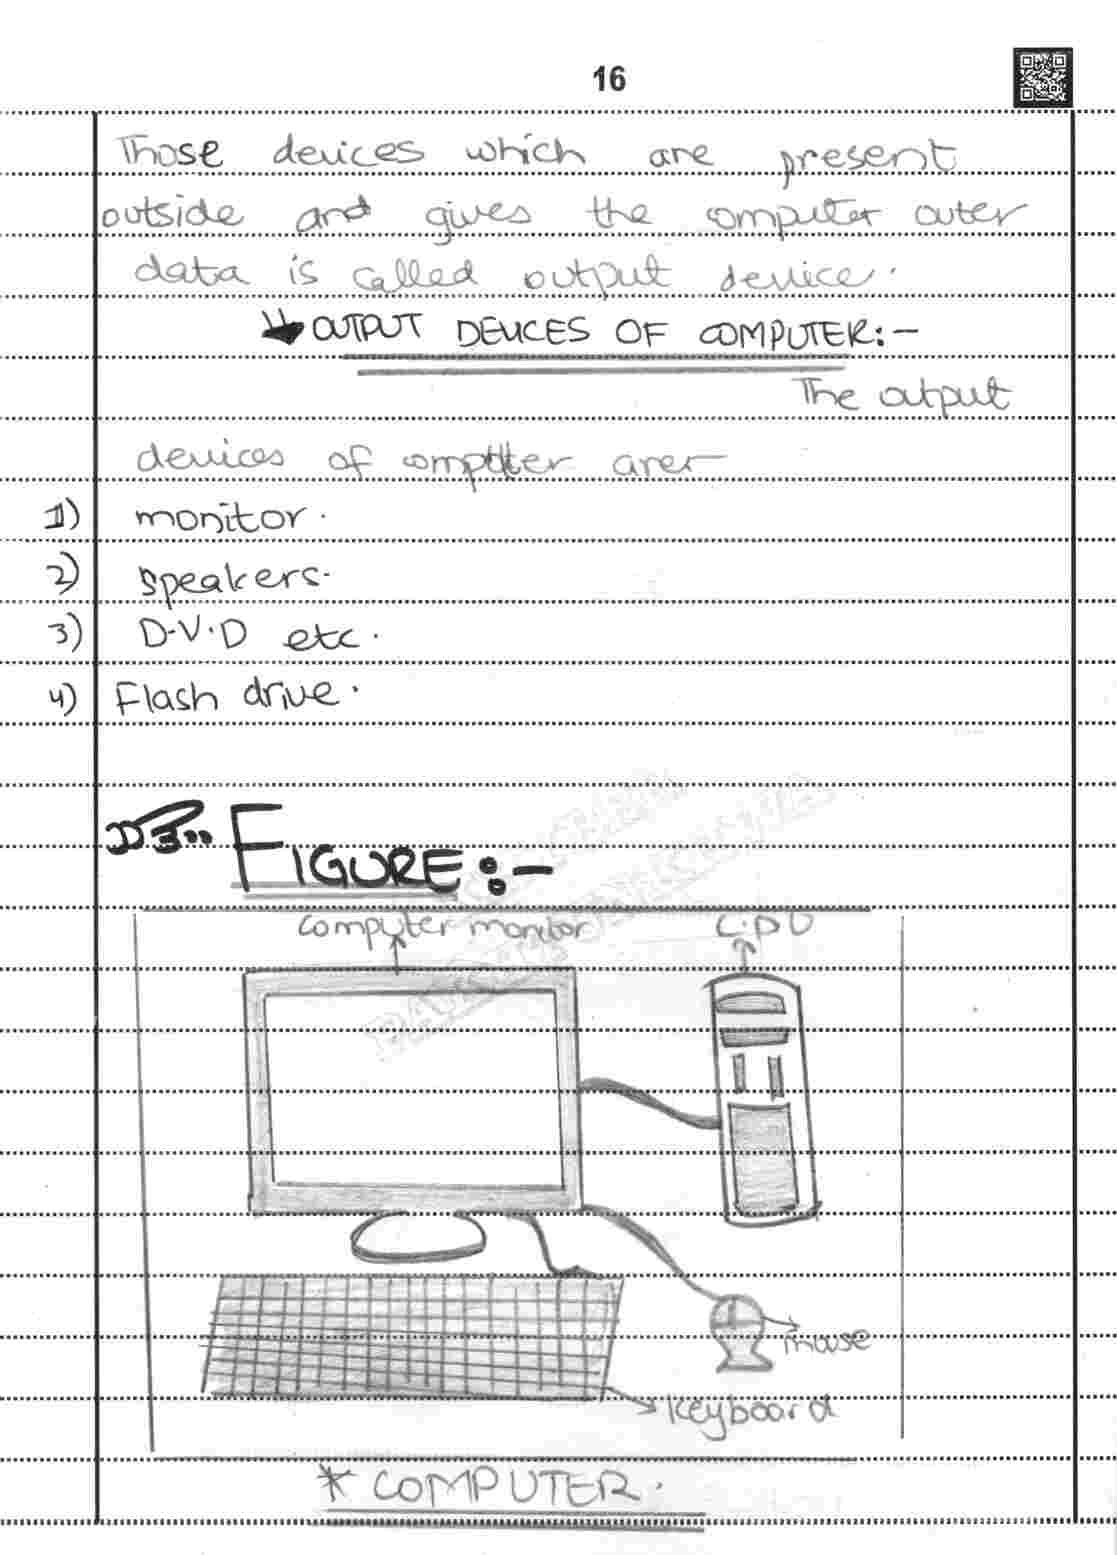 16
Those devices which are present
outside and gives the computer outer
data is called output device.
OUTPUT DEVICES OF COMPUTER:-
The output
devices of computer are:-
1) monitor.
2) speakers.
3) D.V.D etc.
4) Flash drive.
FIGURE:-
computer monitor C.P.U
mouse
keyboard
* COMPUTER.